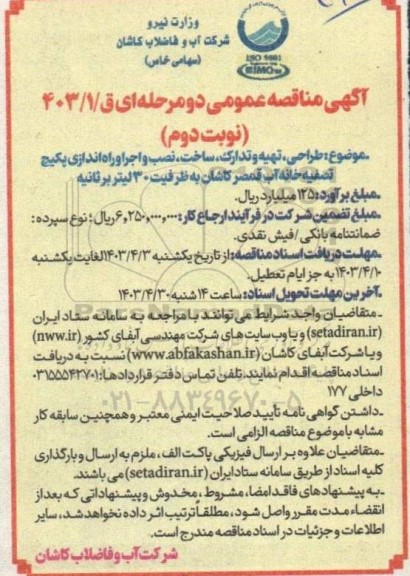 وزارت نیرو
شرکت آب و فاضلاب کاشان
(سهامی خاص)
ISO 9001
آگهی مناقصه عمومی دو مرحله‌ای ق/۴۰۳/۱
(نوبت دوم)
-موضوع: طراحی، تهیه و تدارک، ساخت، نصب و اجرا و راه‌اندازی پکیج
تصفیه‌خانه آب قمصر کاشان به ظرفیت ۳۰ لیتر بر ثانیه
-مبلغ برآورد: ۱۲۵ میلیارد ریال.
-مبلغ تضمین شرکت در فرآیند ارجاع کار: ۶,۲۵۰,۰۰۰,۰۰۰ ریال؛ نوع سپرده:
ضمانتنامه بانکی/فیش نقدی.
-مهلت دریافت اسناد مناقصه: از تاریخ یکشنبه ۱۴۰۳/۴/۳ لغایت یکشنبه
۱۴۰۳/۴/۱۰ به جز ایام تعطیل.
-آخرین مهلت تحویل اسناد: ساعت ۱۴ شنبه ۱۴۰۳/۴/۳۰
- متقاضیان واجد شرایط می‌توانند با مراجعه به سامانه ستاد ایران
(setadiran.ir) و یا وب سایت های شرکت مهندسی آبفای کشور (nww.ir)
و یا شرکت آبفای کاشان (www.abfakashan.ir) نسبت به دریافت
اسناد مناقصه اقدام نمایند. تلفن تماس دفتر قراردادها: ۰۳۱۵۵۵۴۲۷۰۱
داخلی ۱۷۷
-داشتن گواهی نامه تأیید صلاحیت ایمنی معتبر و همچنین سابقه کار
مشابه با موضوع مناقصه الزامی است.
-متقاضیان علاوه بر ارسال فیزیکی پاکت الف، ملزم به ارسال و بارگذاری
کلیه اسناد از طریق سامانه ستاد ایران (setadiran.ir) می باشند.
-به پیشنهادهای فاقد امضا، مشروط، مخدوش و پیشنهاداتی که بعد از
انقضاء مدت مقرر واصل شود، مطلقاً ترتیب اثر داده نخواهد شد، سایر
اطلاعات و جزئیات در اسناد مناقصه مندرج است.
شرکت آب و فاضلاب کاشان
۰۲۱-۸۸۳۴۹۶۷۰-۵